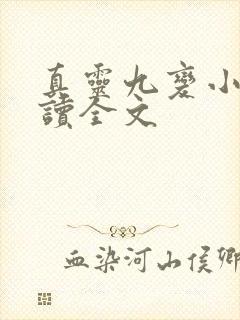 真靈九變小
讀全文
血染河山侯卿